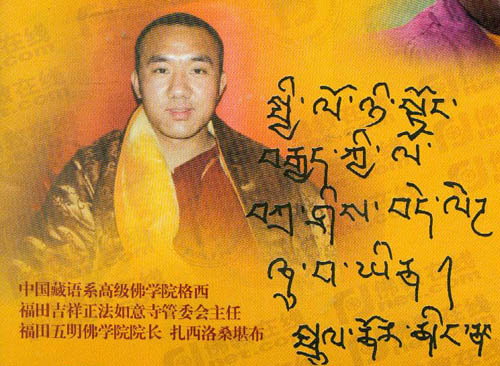 སྤྱི་ལོ་ཉི་སྟོང་
བརྒྱད་ཀྱི་ལོ་
བཀྲ་ཤིས་བདེ་ལེཊ
ཞུ་བ་ཡིན།
中国藏语系高级佛学院格西
福田吉祥正法如意寺管委会主任
福田五明佛学院院长 扎西洛桑堪布